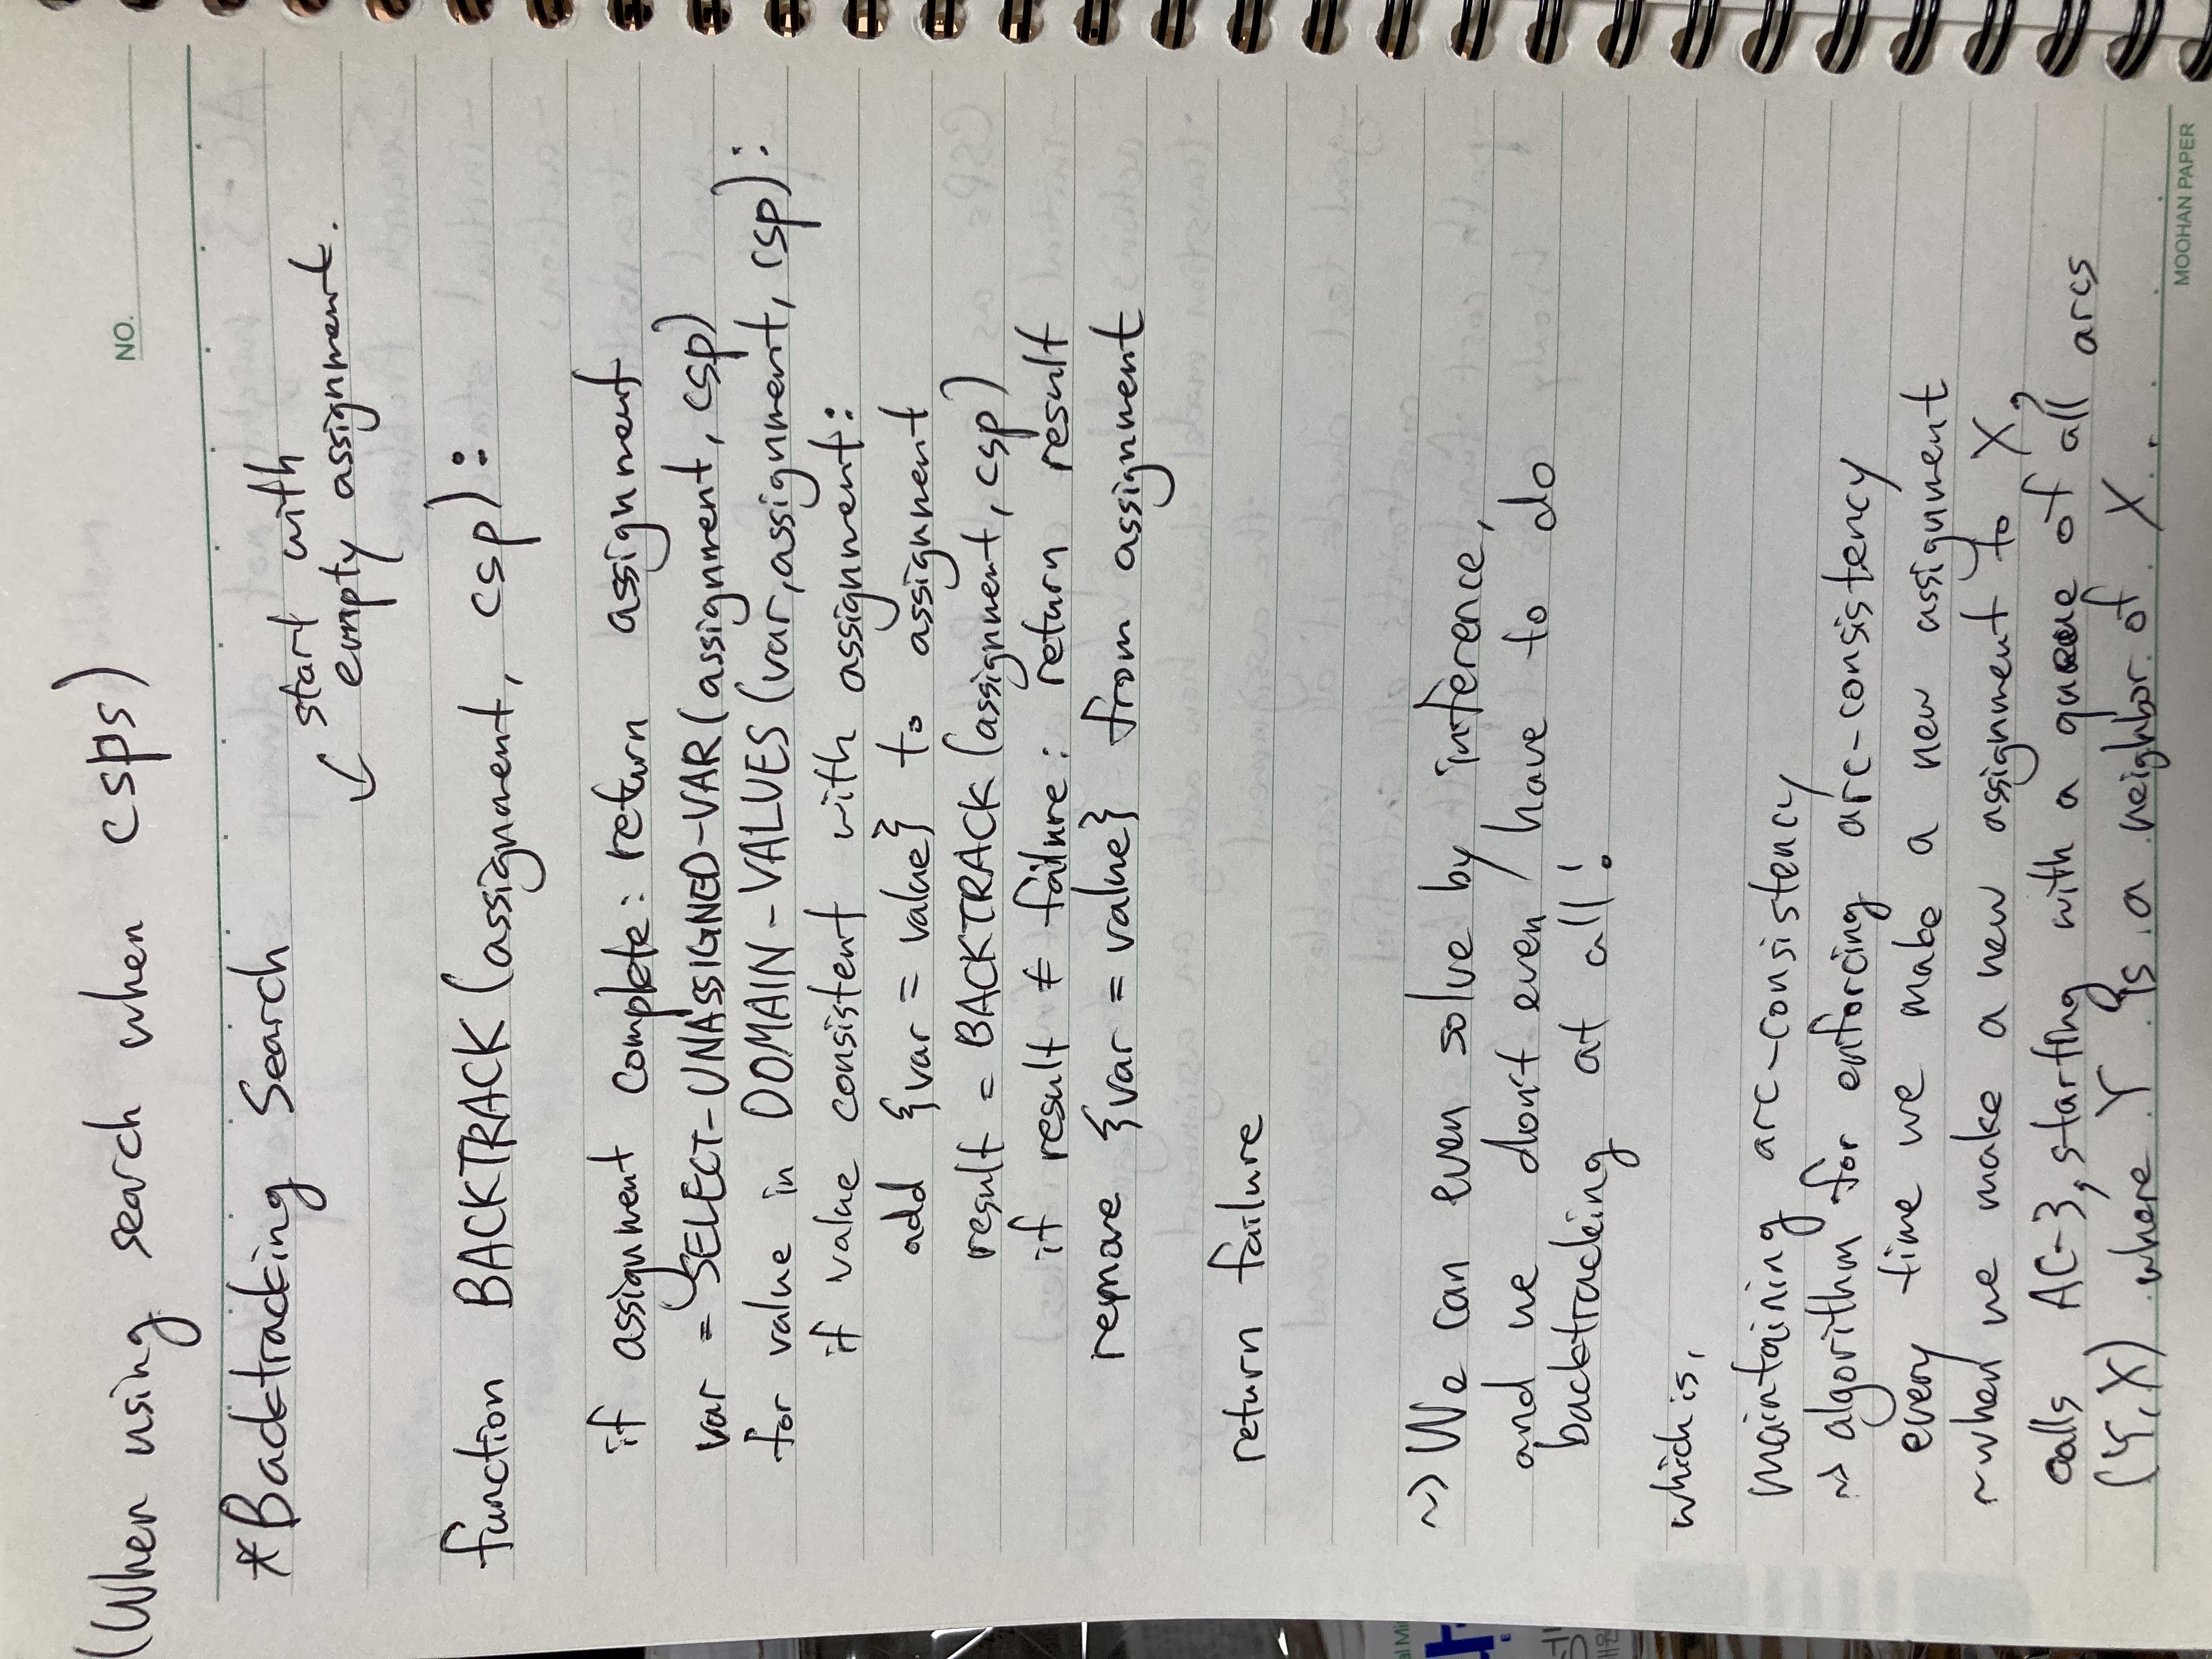 (When using search when csps)
NO.
*Backtracking Search
start with
↙ empty assignment.
function BACKTRACK (assignment, csp):
if assignment complete: return assignment
var = SELECT-UNASSIGNED-VAR (assignment, csp)
for value in DOMAIN-VALUES (var, assignment, csp):
if value consistent with assignment:
add {var = value} to assignment
result = BACKTRACK (assignment, csp)
if result ≠ failure: return result
remove {var = value} from assignment
return failure
~> We can even solve by inference,
and we don't even have to do
backtracking at all!
which is,
maintaining arc-consistency
~> algorithm for enforcing arc-consistency
every time we make a new assignment
~when we make a new assignment to X,
calls AC-3, starting with a queue of all arcs
(Y,X) where Y is a neighbor of X.
MOOHAN PAPER